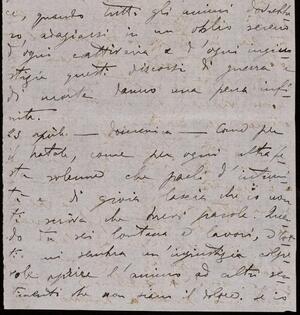 ce, quando tutti gli animi dovrebbe
ro adagiarsi in un oblio sereno
d'ogni cattiveria e d'ogni ingiu
stizia questi discorsi di guerra e
di morte danno una pena infi
nita.
23 aprile - domenica - Come per
il natale, come per ogni altra fe
sta solenne che parli d'intimi
tà e di gioia lascia che io non
ti scriva che brevi parole
do tu sei lontana e lavori,
ti mi sembra un'ingiustizia colpe
vole aprire l'animo ad altri sen
timenti che non siano il dolore. Se io